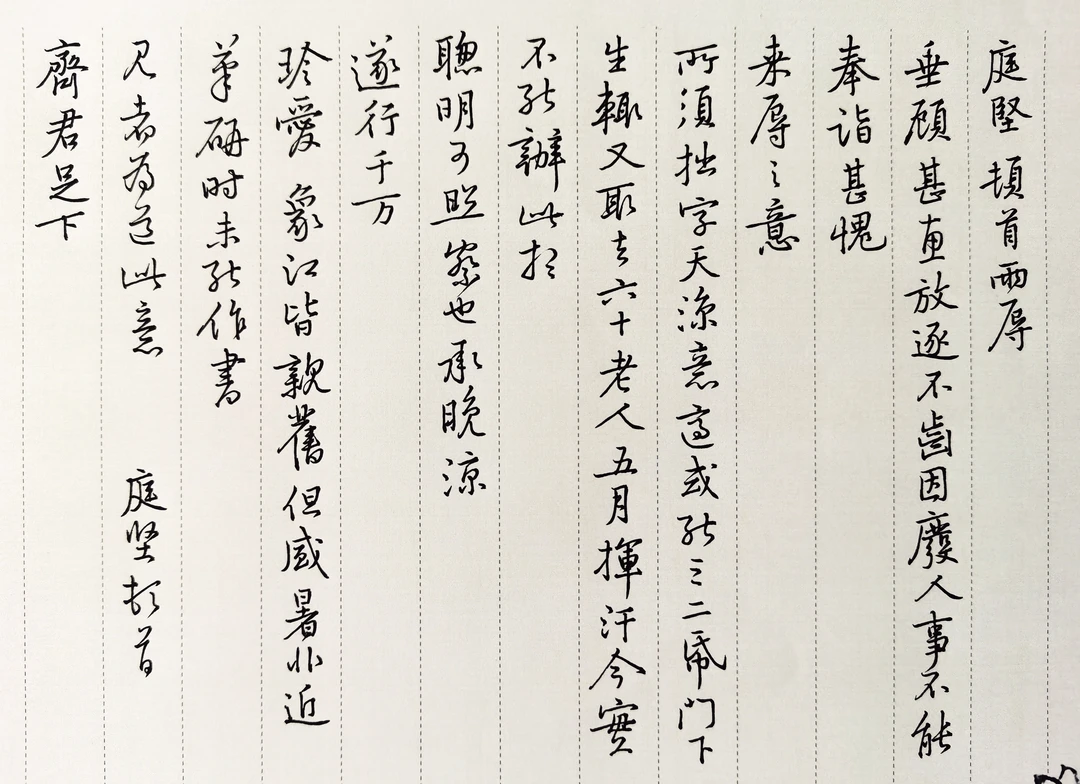 庭堅頓首兩辱
垂顧甚惠放逐不齒因廢人事不能
奉詣甚愧
来辱之意
所須拙字天凉意適或能三二紙門下
生輙又取去六十老人五月揮汗今實
不能辦此想
聰明可照察也承晚凉
遂行千万
珍愛象江皆親舊但盛暑非近
筆研时未能作書
见者为道此意 庭坚頓首
齊君足下